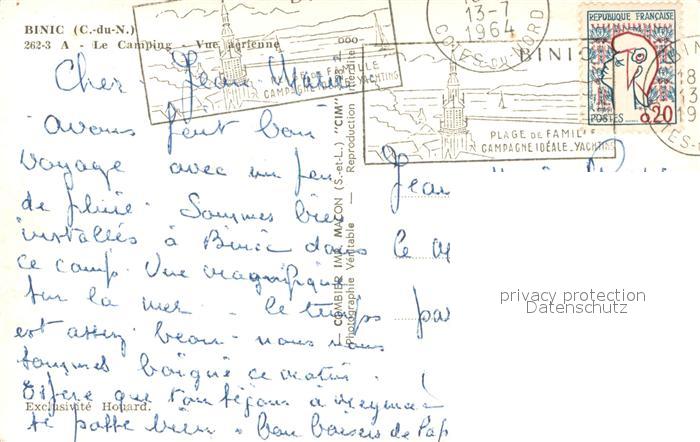 BINIC (C.-du-N.)
262-3 A - Le Camping - Vue aérienne
13-7
1964
COTES-DU-NORD
BINIC
PLAGE DE FAMILLE
CAMPAGNE IDÉALE - YACHTING
PLAGE DE FAMILLE
CAMPAGNE IDÉALE - YACHTING
REPUBLIQUE FRANÇAISE
POSTES 0,20
Cher Jean-Marie
avons fait bon
voyage avec un peu
de pluie. Sommes bien
installés à Binic dans
ce camp. Vue magnifique
sur la mer. le temps
est assez beau. nous nous
sommes baigné ce matin.
Espère que ton séjour à
se passe bien. bon baisers de Pap
Jean
Le
par
COMBIER IMP. MACON (S.-et-L.) "CIM"
Photographie Véritable — Reproduction interdite
Exclusivité Houard.
privacy protection
Datenschutz